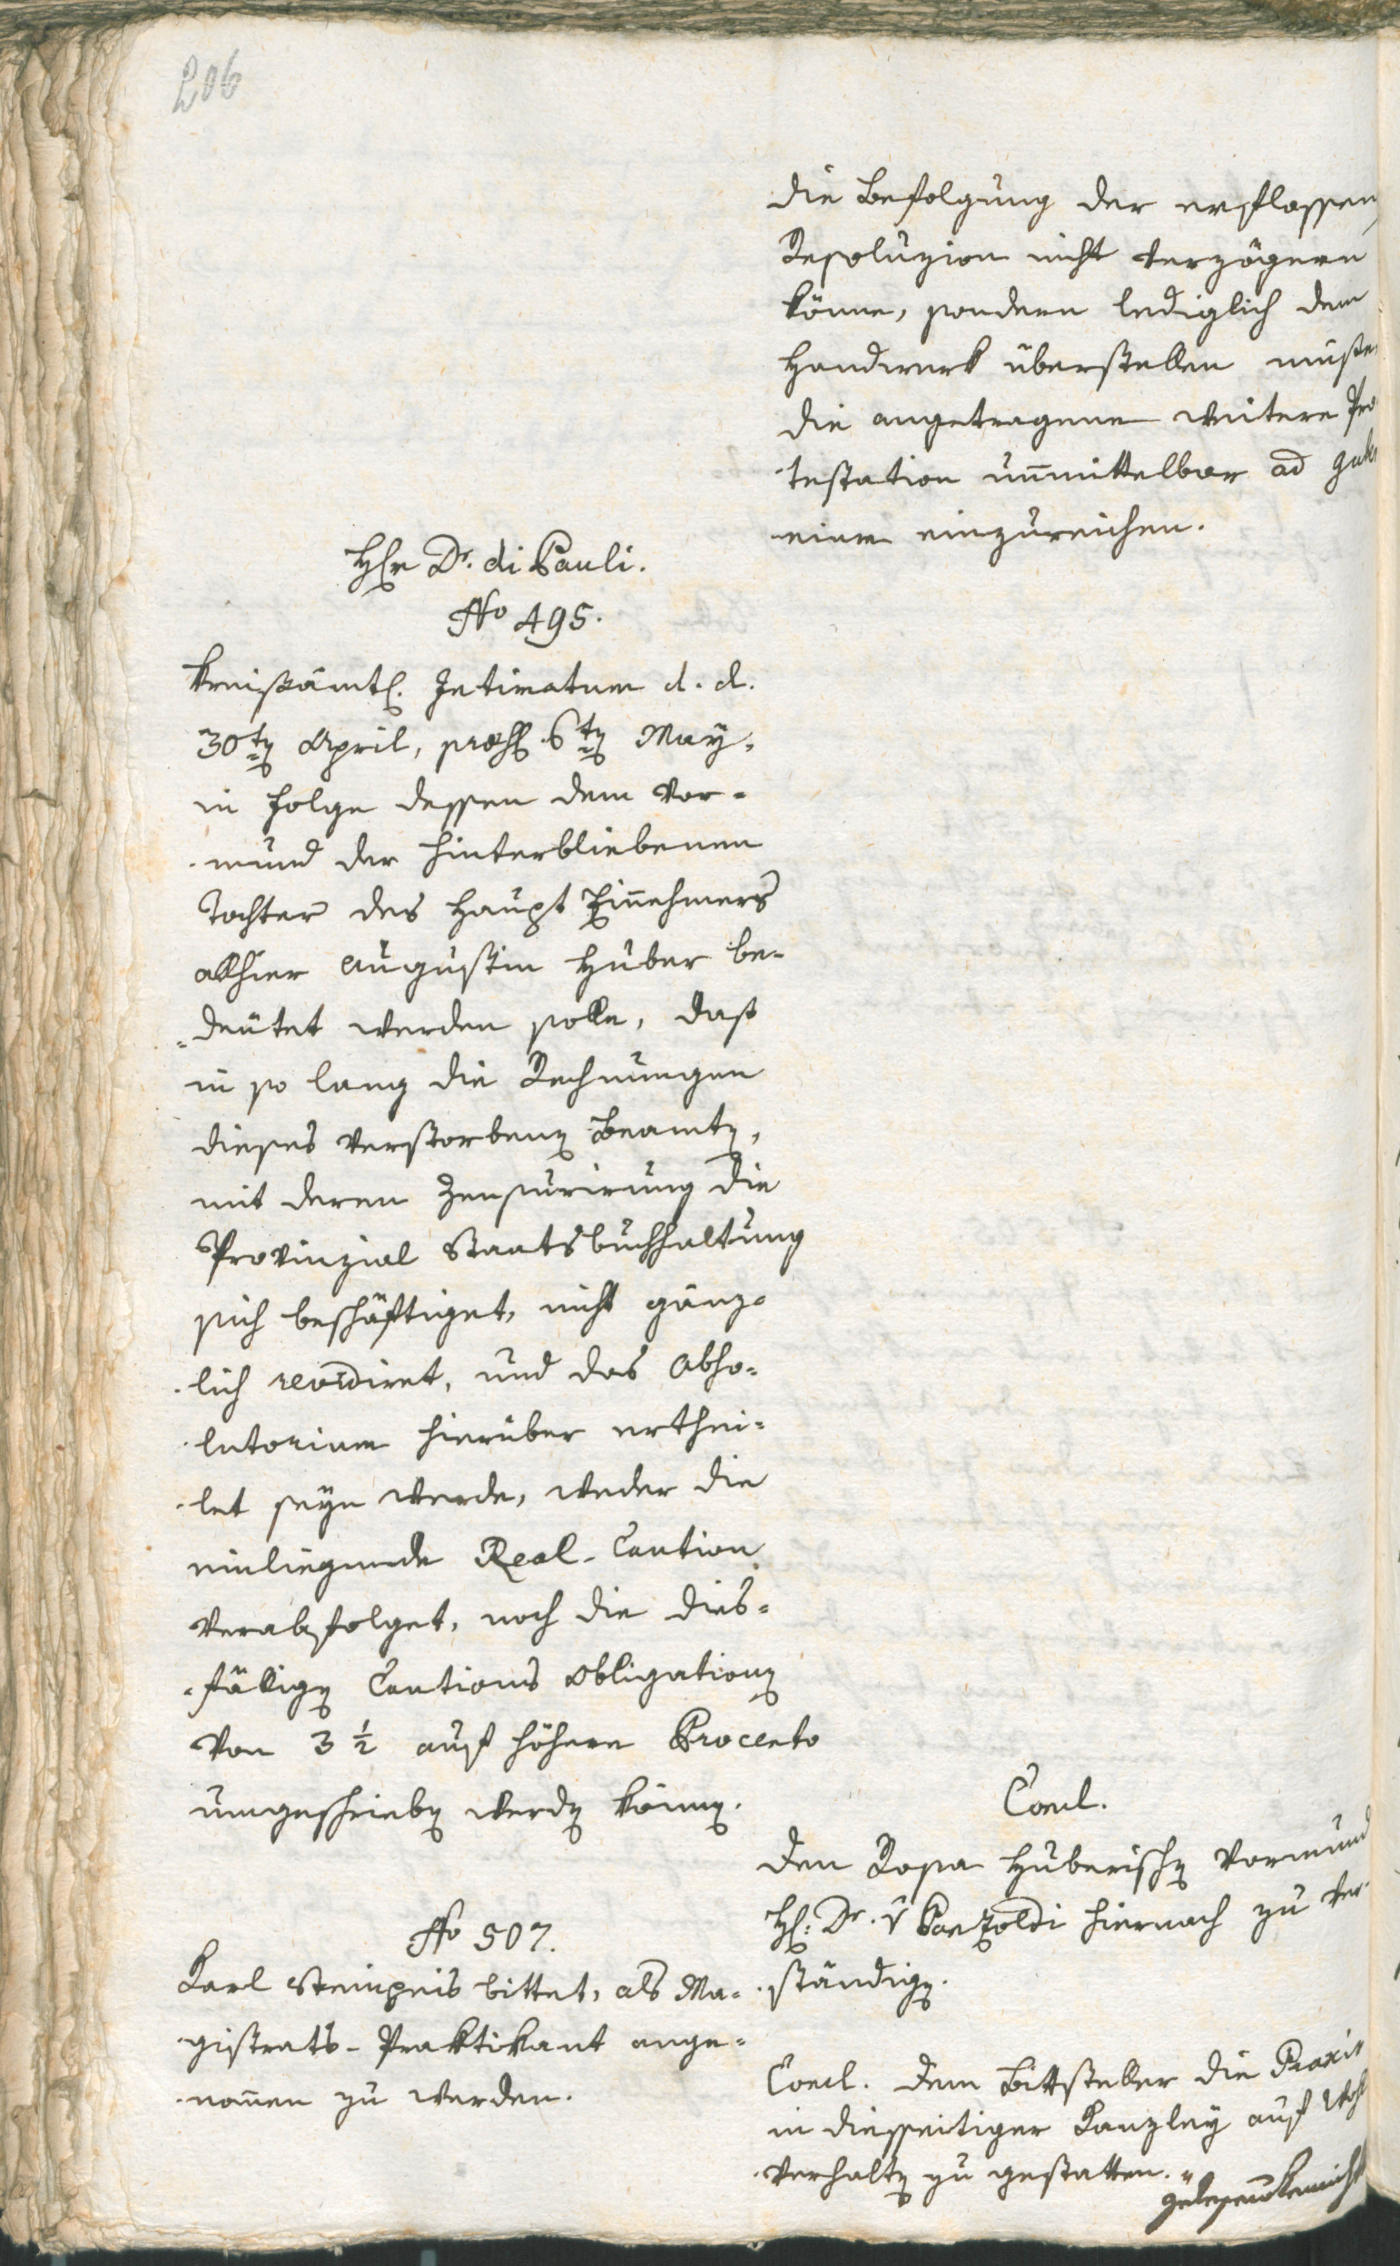 206
die Befolgung der erflossen
Resoluzion nicht verzögern
könne, sondern lediglich dem
Handwerk überstellen müße
die angetragene weitere Pro
testation unmittelbar ad gub
einzureichen.
Hℓr Dr. di Pauli.
No 495.
Kreisämtl. Intimatum d. d.
30ten April, præs 6ten May,
in folge dessen dem Vor-
mund der hinterbliebenen
Tochter des Haupt Einnehmers
allhier Augustin Huber be-
deutet werden solle, daß
in so lang die Rechnungen
dieses verstorbenen Beamten,
mit deren Zensurirung die
Provinzial Staatsbuchhaltung
sich beschäftiget, nicht gänz-
lich revidiret, und das Abso-
lutorium hierüber erthei-
let seyn werde, weder die
einliegende Real-Caution
verabfolget, noch die dies-
fälligen Cautions Obligationen
von 3 ½ auf höhere Procento
umgeschrieben werden können.
Concl.
Den Rosa Huberischen Vormund
Hℓ: Dr. v hiernach zu ver-
ständigen.
No 507.
Karl bittet, als Ma-
gistrats-Praktikant ange-
nom̄en zu werden.
Concl. Dem Bittsteller die Praxis
in diesseitiger Kanzley auf Wohl
verhalten zu gestatten.